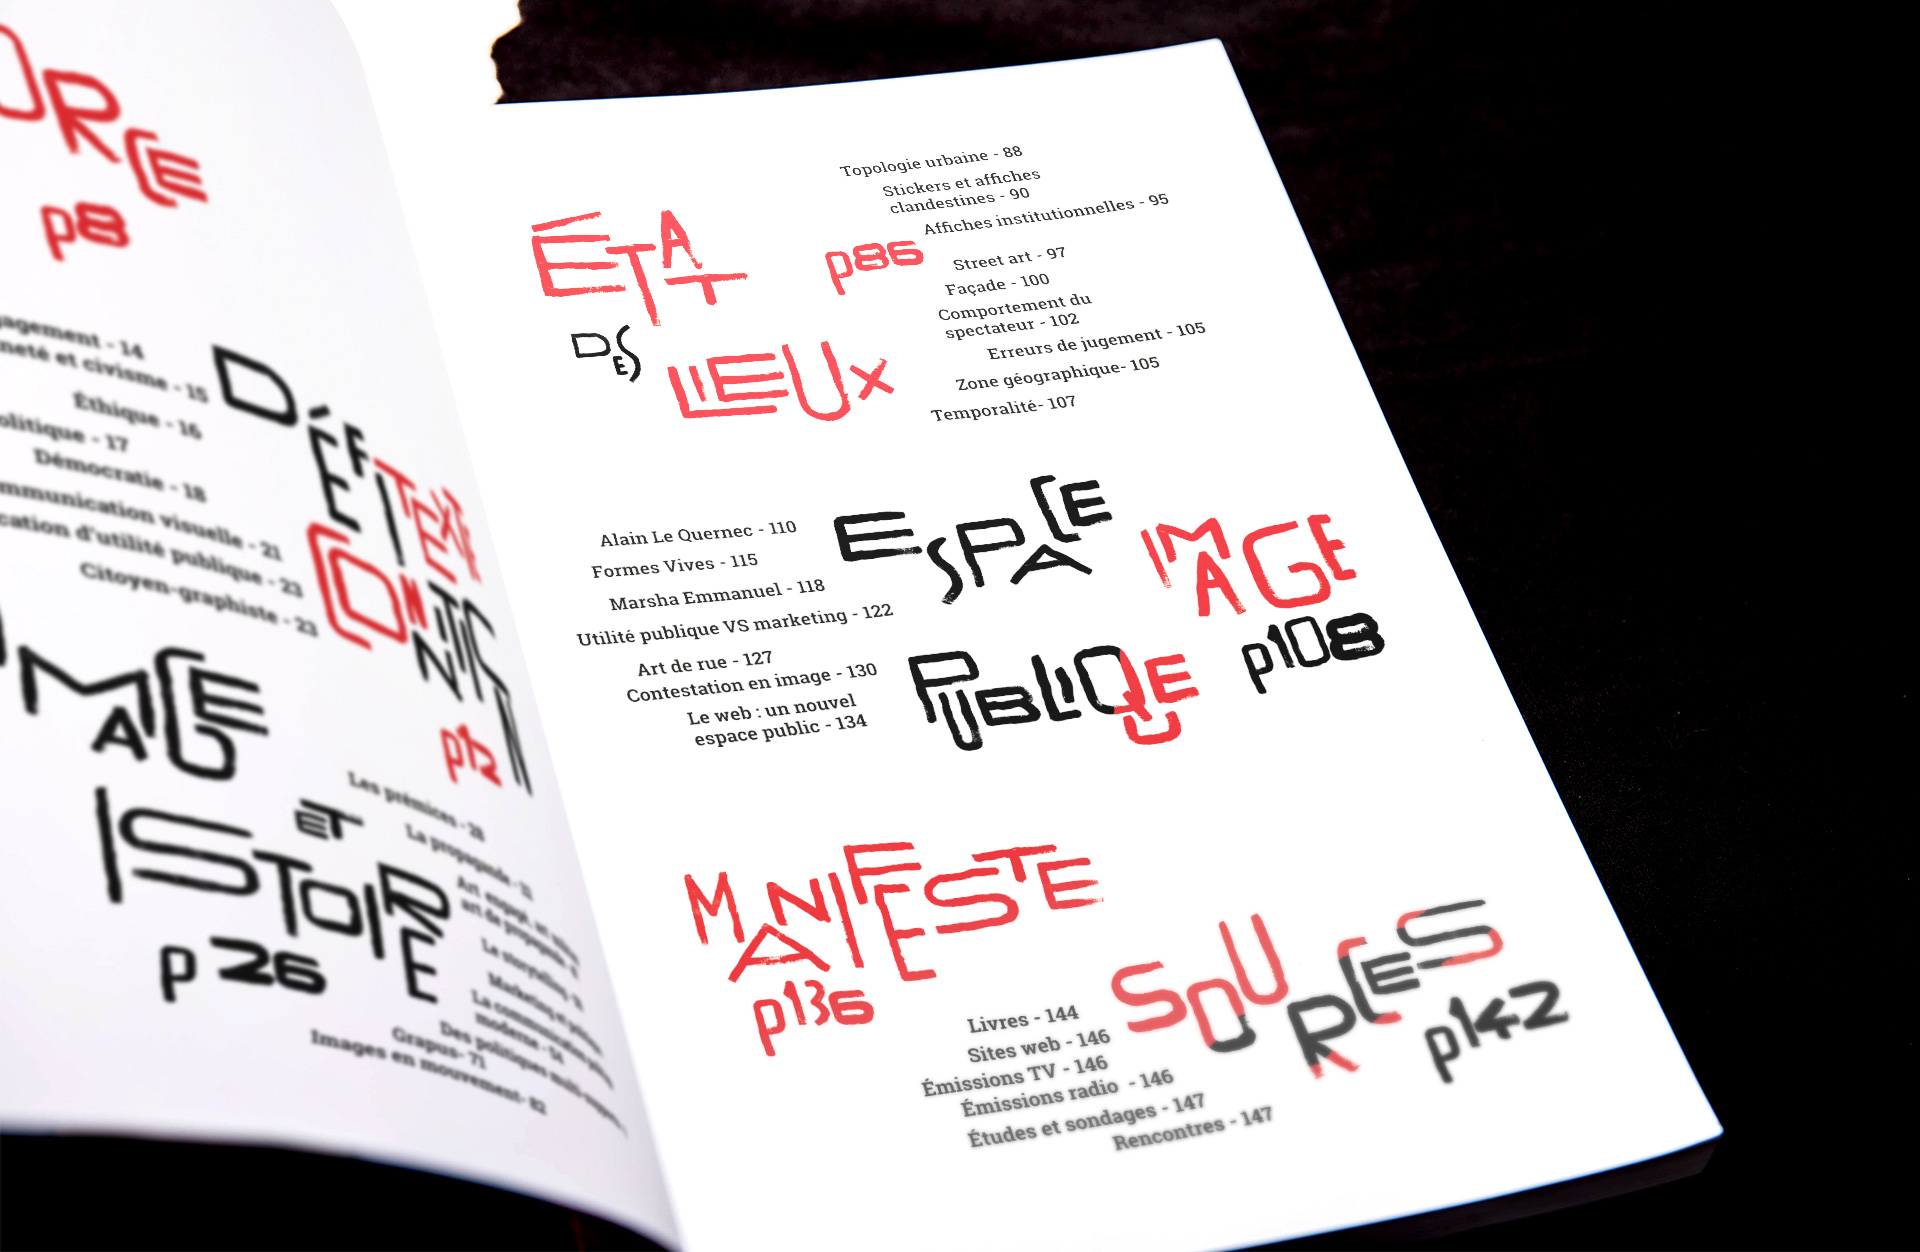 p8
- 14
et civisme - 15
Éthique - 16
- 17
Démocratie - 18
visuelle - 21
d'utilité publique - 23
Citoyen-graphiste - 23
CONTEXTE
p12
IMAGE
ET
p 26
Les prémices - 28
La propagande - 31
Le storytelling
Marketing et
La communication
moderne - 54
Des politiques
Grapus- 71
Images en mouvement- 82
ÉTAT
DES
LIEUX
p86
Topologie urbaine - 88
Stickers et affiches
clandestines - 90
Affiches institutionnelles - 95
Street art - 97
Façade - 100
Comportement du
spectateur - 102
Erreurs de jugement - 105
Zone géographique- 105
Temporalité- 107
ESPACE
IMAGE
PUBLIQUE
p108
Alain Le Quernec - 110
Formes Vives - 115
Marsha Emmanuel - 118
Utilité publique VS marketing - 122
Art de rue - 127
Contestation en image - 130
Le web : un nouvel
espace public - 134
MANIFESTE
p136
SOURCES
p142
Livres - 144
Sites web - 146
Émissions TV - 146
Émissions radio - 146
Études et sondages - 147
Rencontres - 147